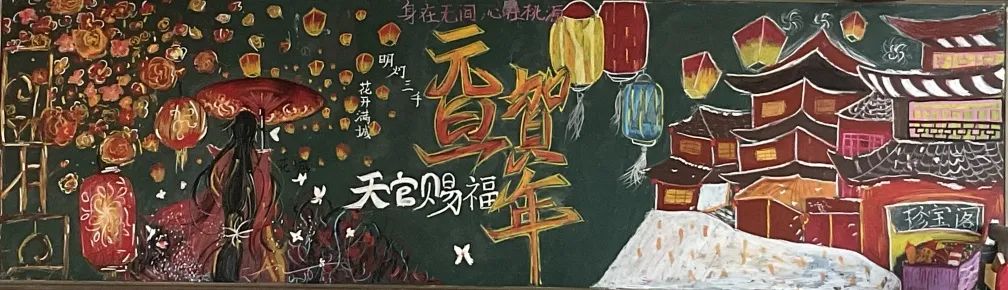 身在无间,心在桃源
明灯三千
花开满城
元旦
贺年
天官赐福
珍宝阁